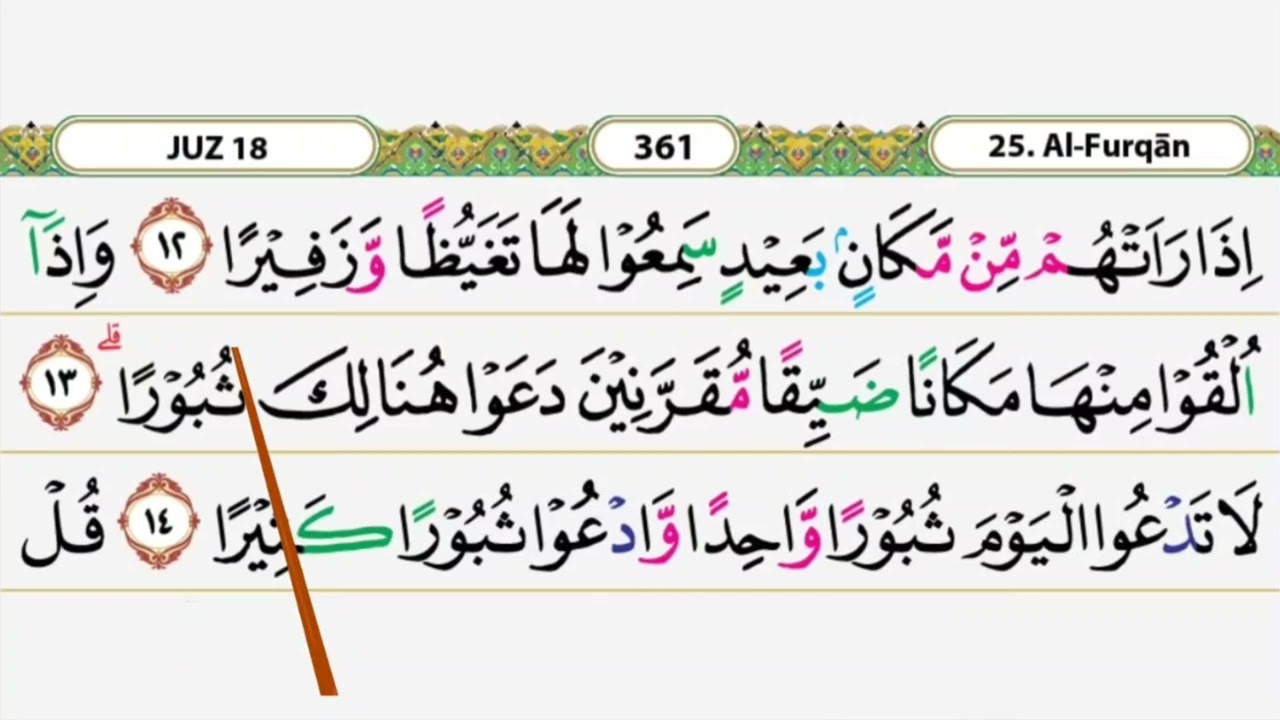 JUZ 18
361
25. Al-Furqān
اِذَا رَاَتْهُمْ مِّنْ مَّكَانٍۢ بَعِيْدٍ سَمِعُوْا لَهَا تَغَيُّظًا وَّزَفِيْرًا ١٢ وَاِذَآ
اُلْقُوْا مِنْهَا مَكَانًا ضَيِّقًا مُّقَرَّنِيْنَ دَعَوْا هُنَالِكَ ثُبُوْرًا ۗ ١٣
لَا تَدْعُوا الْيَوْمَ ثُبُوْرًا وَّاحِدًا وَّادْعُوْا ثُبُوْرًا كَثِيْرًا ١٤ قُلْ